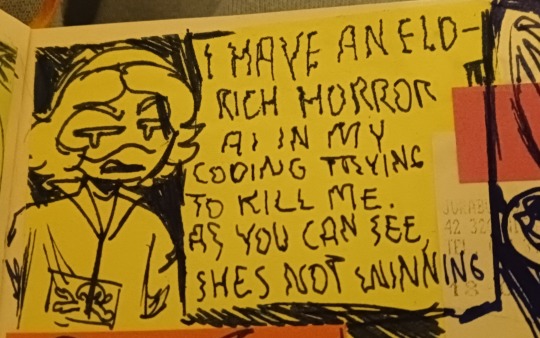 I HAVE AN ELD-
RICH HORROR
AI IN MY
CODING TRYING
TO KILL ME.
AS YOU CAN SEE,
SHES NOT WINNING
42 32